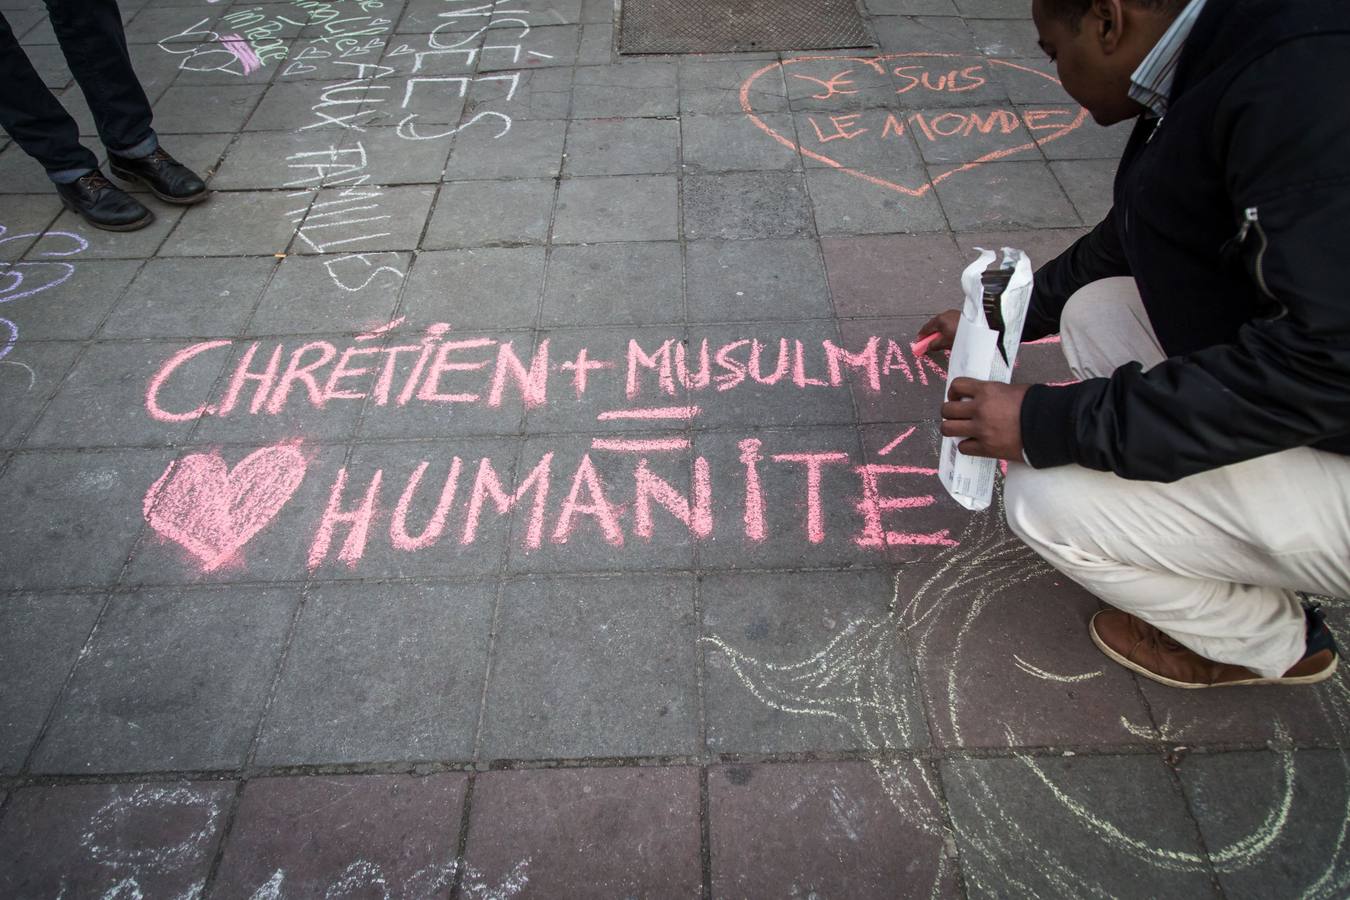 in Peace
JE SUIS
LE MONDE
AUX FAMILLES
CHRÉTIEN + MUSULMAN
=
HUMANITÉ